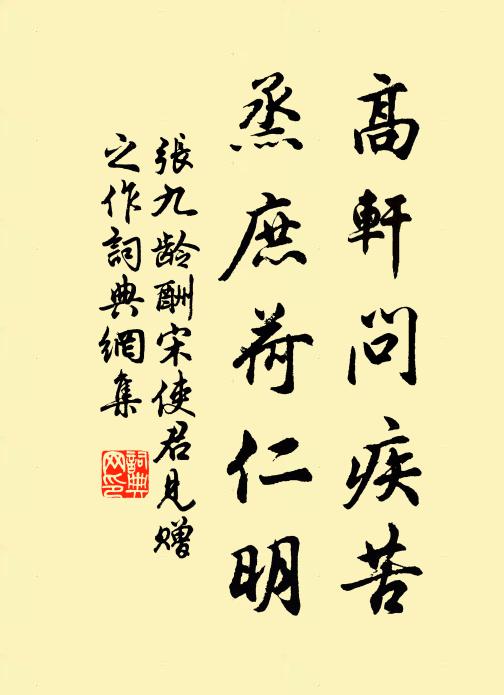 高軒問疾苦
烝庶荷仁明
張九齡酬宋使君見贈
之作詞典網集
詞典
网印